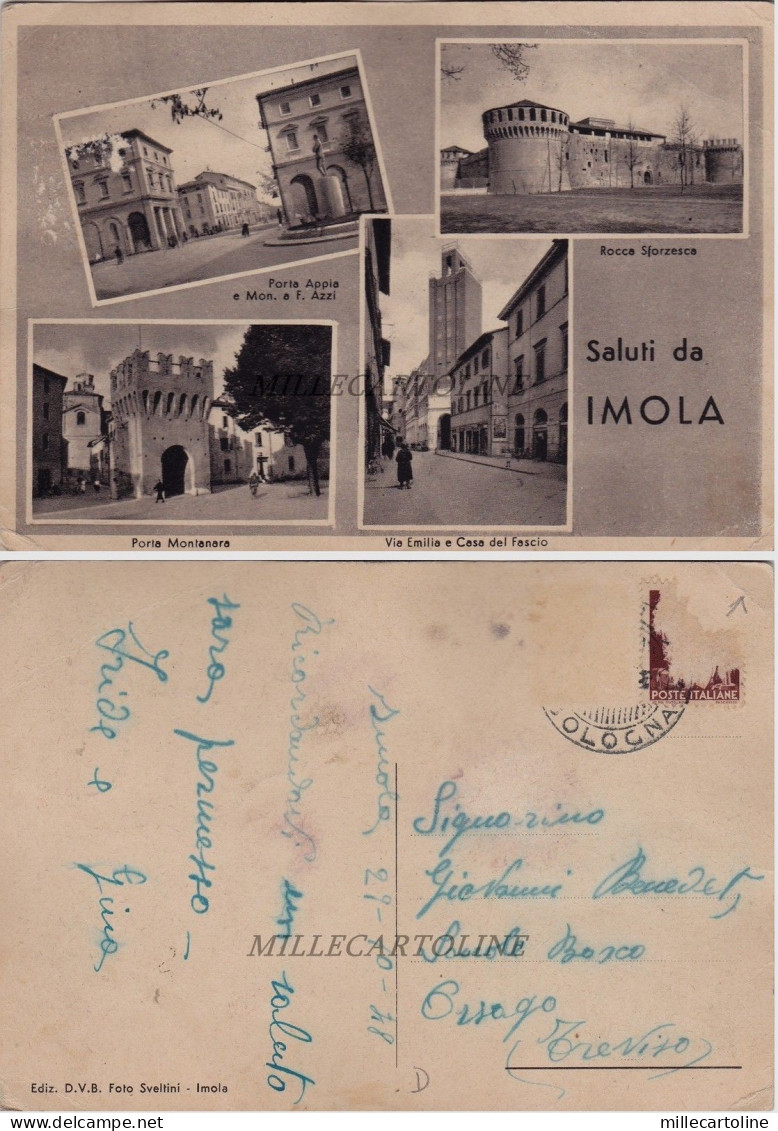 Porta Appia
e Mon. a F. Azzi
Rocca Sforzesca
Saluti da
IMOLA
MILLECARTOLINE
Porta Montanara
Via Emilia e Casa del Fascio
POSTE ITALIANE
BOLOGNA
Imola, 29-10-48
Ricordandoti un saluto
sara, permesso -
Iride e Gina
Signorino
Giovanni Benedet
Bosco
Orsago
(Treviso)
MILLECARTOLINE
Ediz. D.V.B. Foto Sveltini - Imola
D
delcampe.net
millecartoline